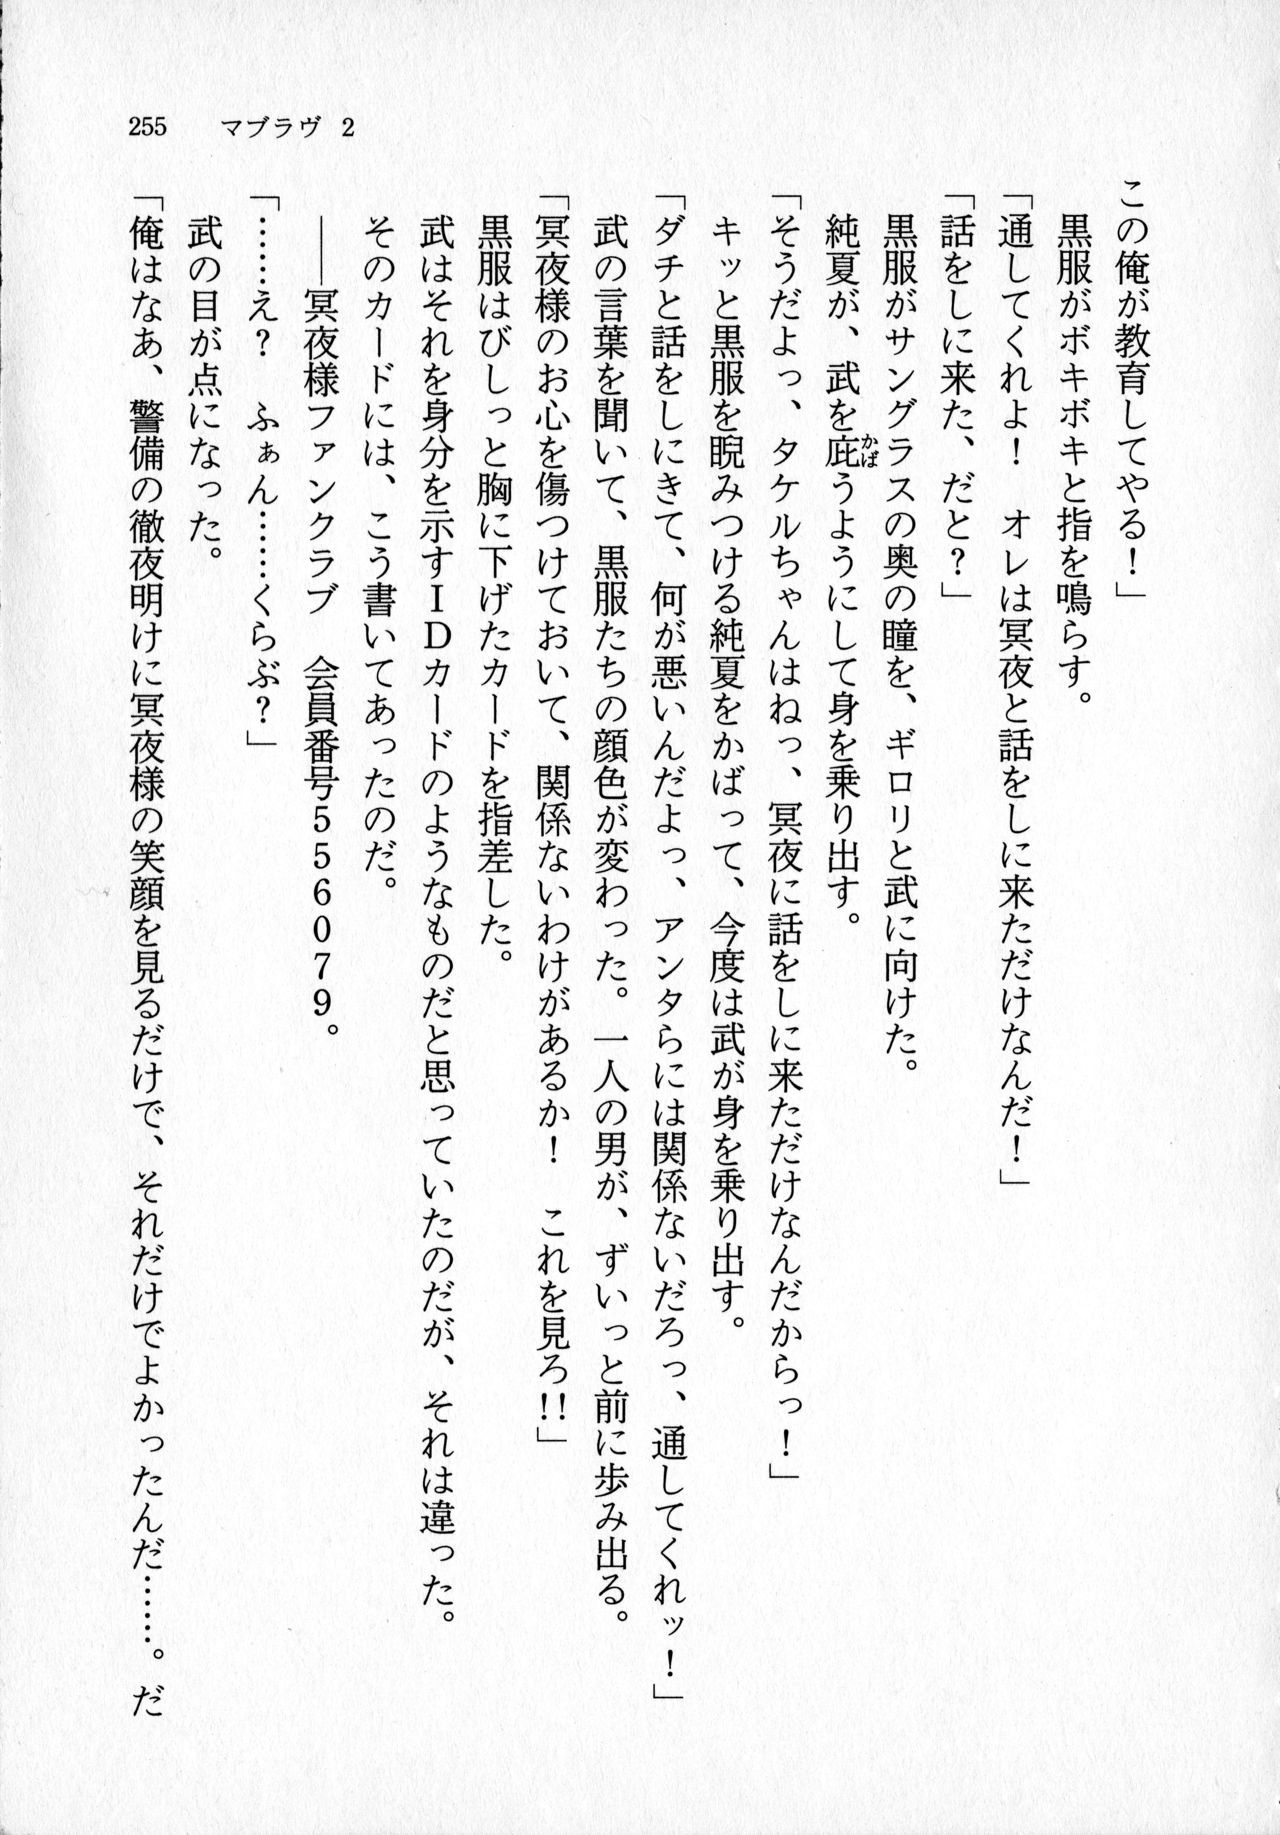 255　マブラヴ 2
この俺が教育してやる！」
　黒服がボキボキと指を鳴らす。
「通してくれよ！　オレは冥夜と話をしに来ただけなんだ！」
「話をしに来た、だと？」
　黒服がサングラスの奥の瞳を、ギロリと武に向けた。
　純夏が、武を庇うようにして身を乗り出す。
かば
「そうだよっ、タケルちゃんはねっ、冥夜に話をしに来ただけなんだからっ！」
　キッと黒服を睨みつける純夏をかばって、今度は武が身を乗り出す。
「ダチと話をしにきて、何が悪いんだよっ、アンタらには関係ないだろっ、通してくれッ！」
　武の言葉を聞いて、黒服たちの顔色が変わった。一人の男が、ずいっと前に歩み出る。
「冥夜様のお心を傷つけておいて、関係ないわけがあるか！　これを見ろ!!」
　黒服はびしっと胸に下げたカードを指差した。
　武はそれを身分を示すＩＤカードのようなものだと思っていたのだが、それは違った。
　そのカードには、こう書いてあったのだ。
　――冥夜様ファンクラブ　会員番号５５６０７９。
「……え？　ふぁん……くらぶ？」
　武の目が点になった。
「俺はなあ、警備の徹夜明けに冥夜様の笑顔を見るだけで、それだけでよかったんだ……。だ